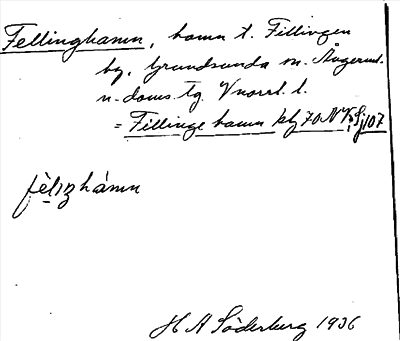 Fellinghamn, hamn t. Fillingen
by, Grundsunda sn. Ångerml.
n. doms. tg. Vnorrl. l.
= Fillinge hamn blj 70 NV; Sj 107
fèlıŋhámn
H A Söderberg 1936